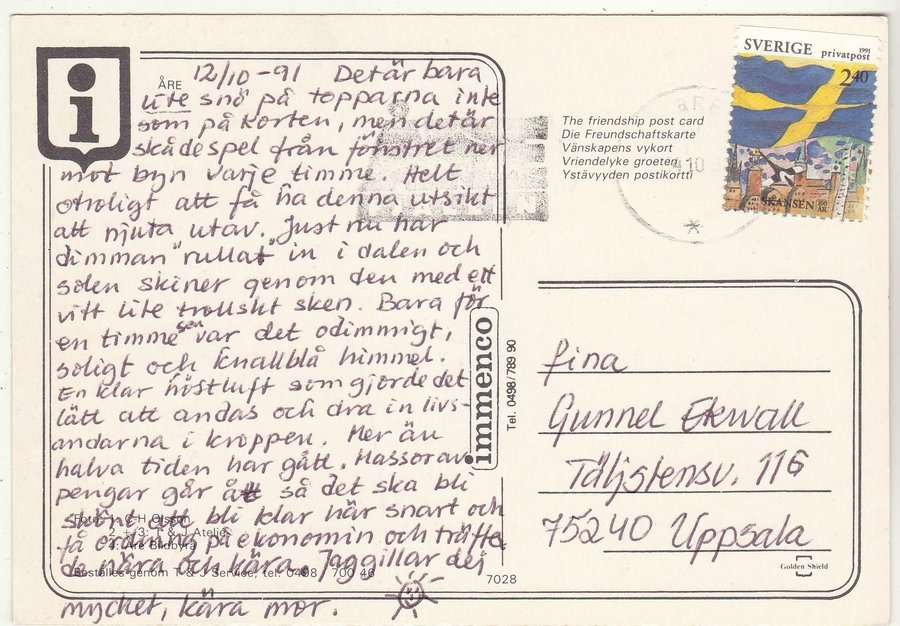 i
ÅRE
12/10-91 Det är bara
lite snö på topparna inte
som på korten, men det är
skådespel från fönstret ner
mot byn varje timme. Helt
otroligt att få ha denna utsikt
att njuta utav. Just nu har
dimman "rullat" in i dalen och
solen skiner genom den med ett
vitt lite trollskt sken. Bara för
en timme sen var det odimmigt,
soligt och knallblå himmel.
En klar höstluft som gjorde det
lätt att andas och dra in livs-
andarna i kroppen. Mer än
halva tiden har gått. Massor av
pengar går åt så det ska bli
skönt att bli klar här snart och
få ordning på ekonomin och träffa
de nära och kära. Jag gillar dej
mycket, kära mor.
Foto: 1: C-H Olsson
2 + 3: T & J Ateljé
4: Åre Bildbyrå
Beställes genom T & J Service, tel. 0498/700 46
7028
immenco
Tel. 0498/789 90
The friendship post card
Die Freundschaftskarte
Vänskapens vykort
Vriendelyke groeten
Ystävyyden postikortti
SVERIGE privatpost 1991
2.40
SKANSEN 100 ÅR
ÅRE
fina
Gunnel Ekwall
Täljstensv. 116
75240 Uppsala
Golden Shield